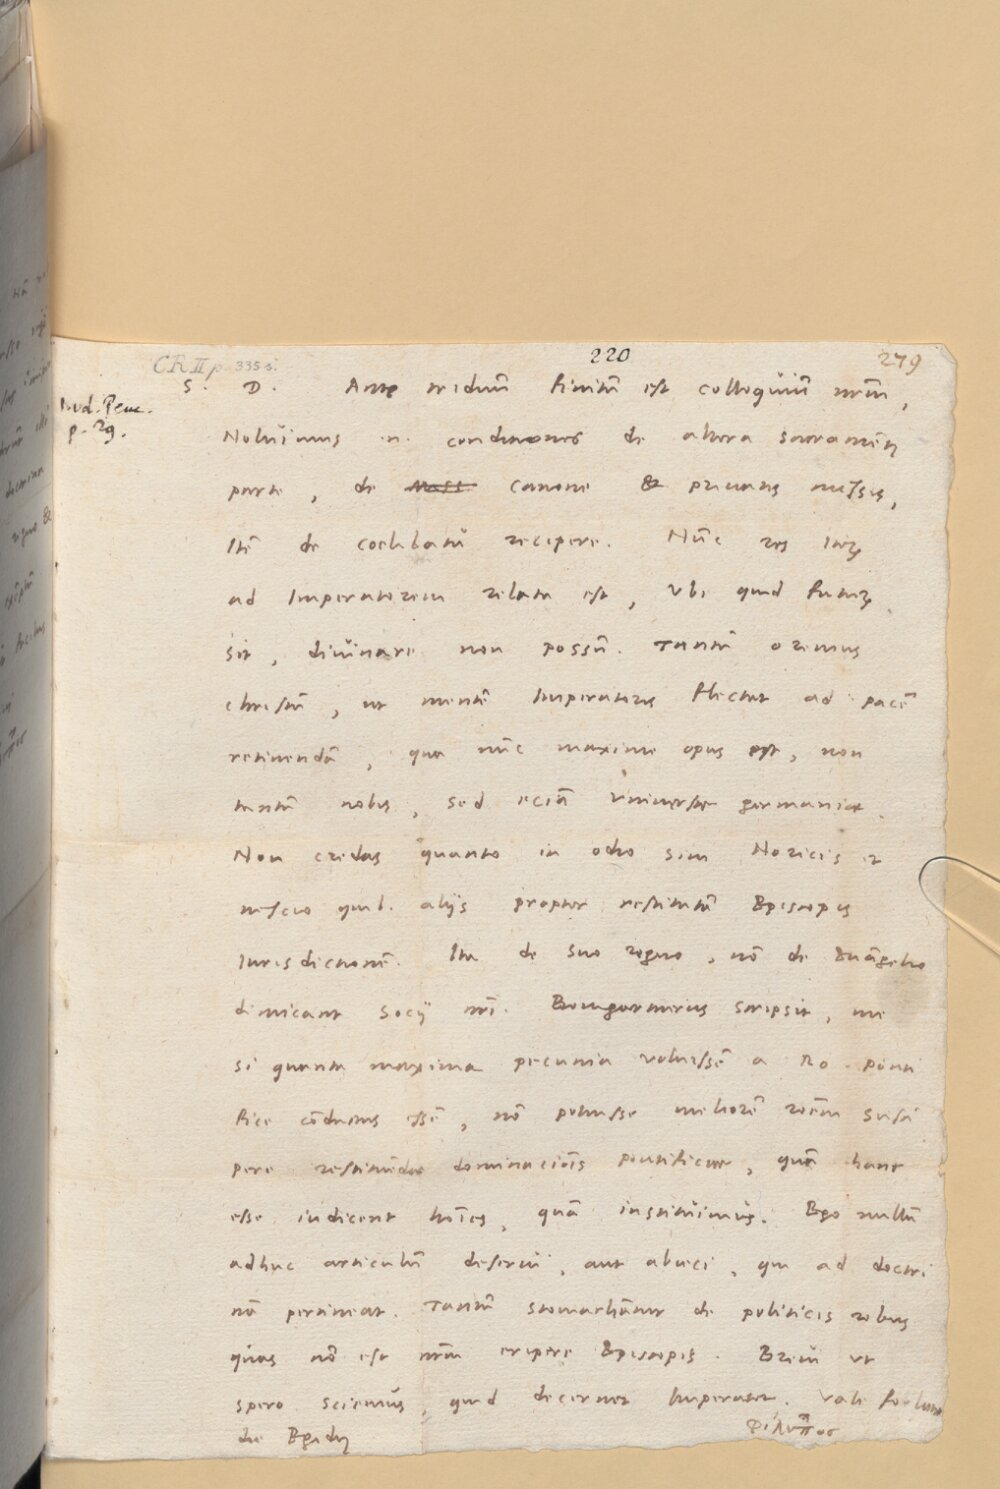 CR II p. 335 s.
220
279
Bud. Peuc.
p. 29.
S. D. Ante triduũ finitũ est colloquiũ nr̃m,
Noluimus .n. conditiones de altera sacramẽti
parte, de canone & priuatis missis,
Itẽ de coelibatu recipere. Nũc res iterũ
ad Imperatorem relata est, Vbi quid futurũ
sit, diuinare non possũ. Tantũ oremus
christũ, ut mentẽ Imperatoris flectat ad pacẽ
retinendã, qua nũc maxime opus est, non
tantũ nobis, sed eciã vniuersae germaniae.
Non credas quanto in odio sim Noricis et
nescio quib. alijs propter restitutã Episcopis
Iurisdictionẽ. Ita de suo regno, nõ de Euãgelio
dimicant Socij nr̃i. Bomgartnerus scripsit, me
si quanta maxima pecunia voluissẽ a Ro. ponti
fice cõductus essẽ, nõ potuisse meliorẽ roẽm susci
pere restituẽdae dominacõis pontificiae, quã hanc
esse iudicent hoĩes, quã instituimus. Ego nullũ
adhuc articulũ deserui, aut abieci, qui ad doctri
nã pertineat. Tantũ stomachãtur de politicis rebus
quas nõ est nr̃m eripere Episcopis. Breui ut
spero sciemus, quid decernet Imperator. Vale
die Egidij Φίλιππος